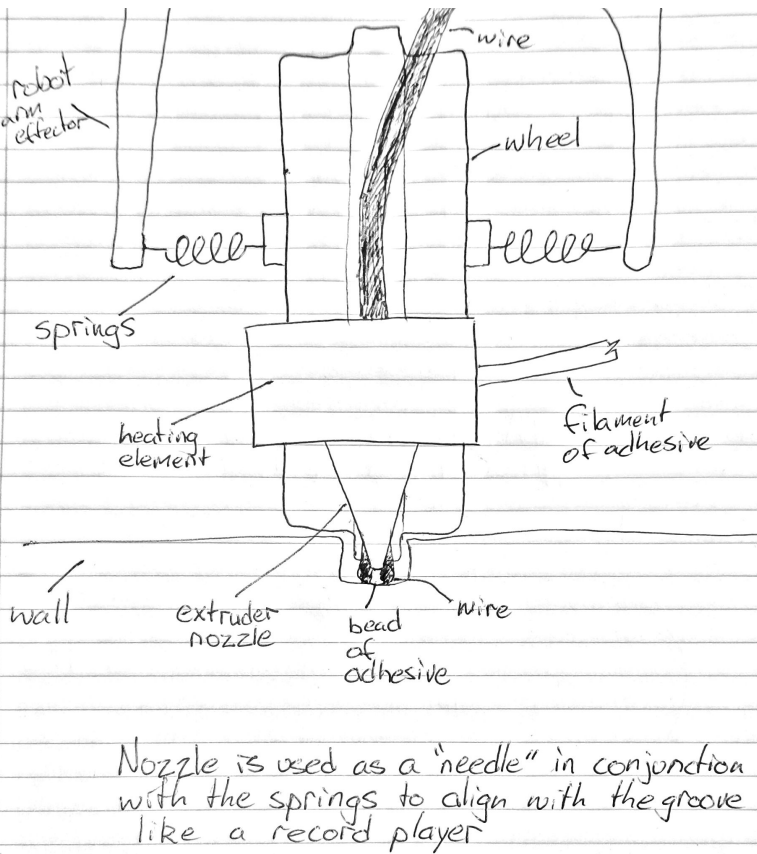 wire
robot
arm
effector
wheel
springs
heating
element
filament
of adhesive
wall
extruder
nozzle
bead
of
adhesive
wire
Nozzle is used as a "needle" in conjunction
with the springs to align with the groove
like a record player